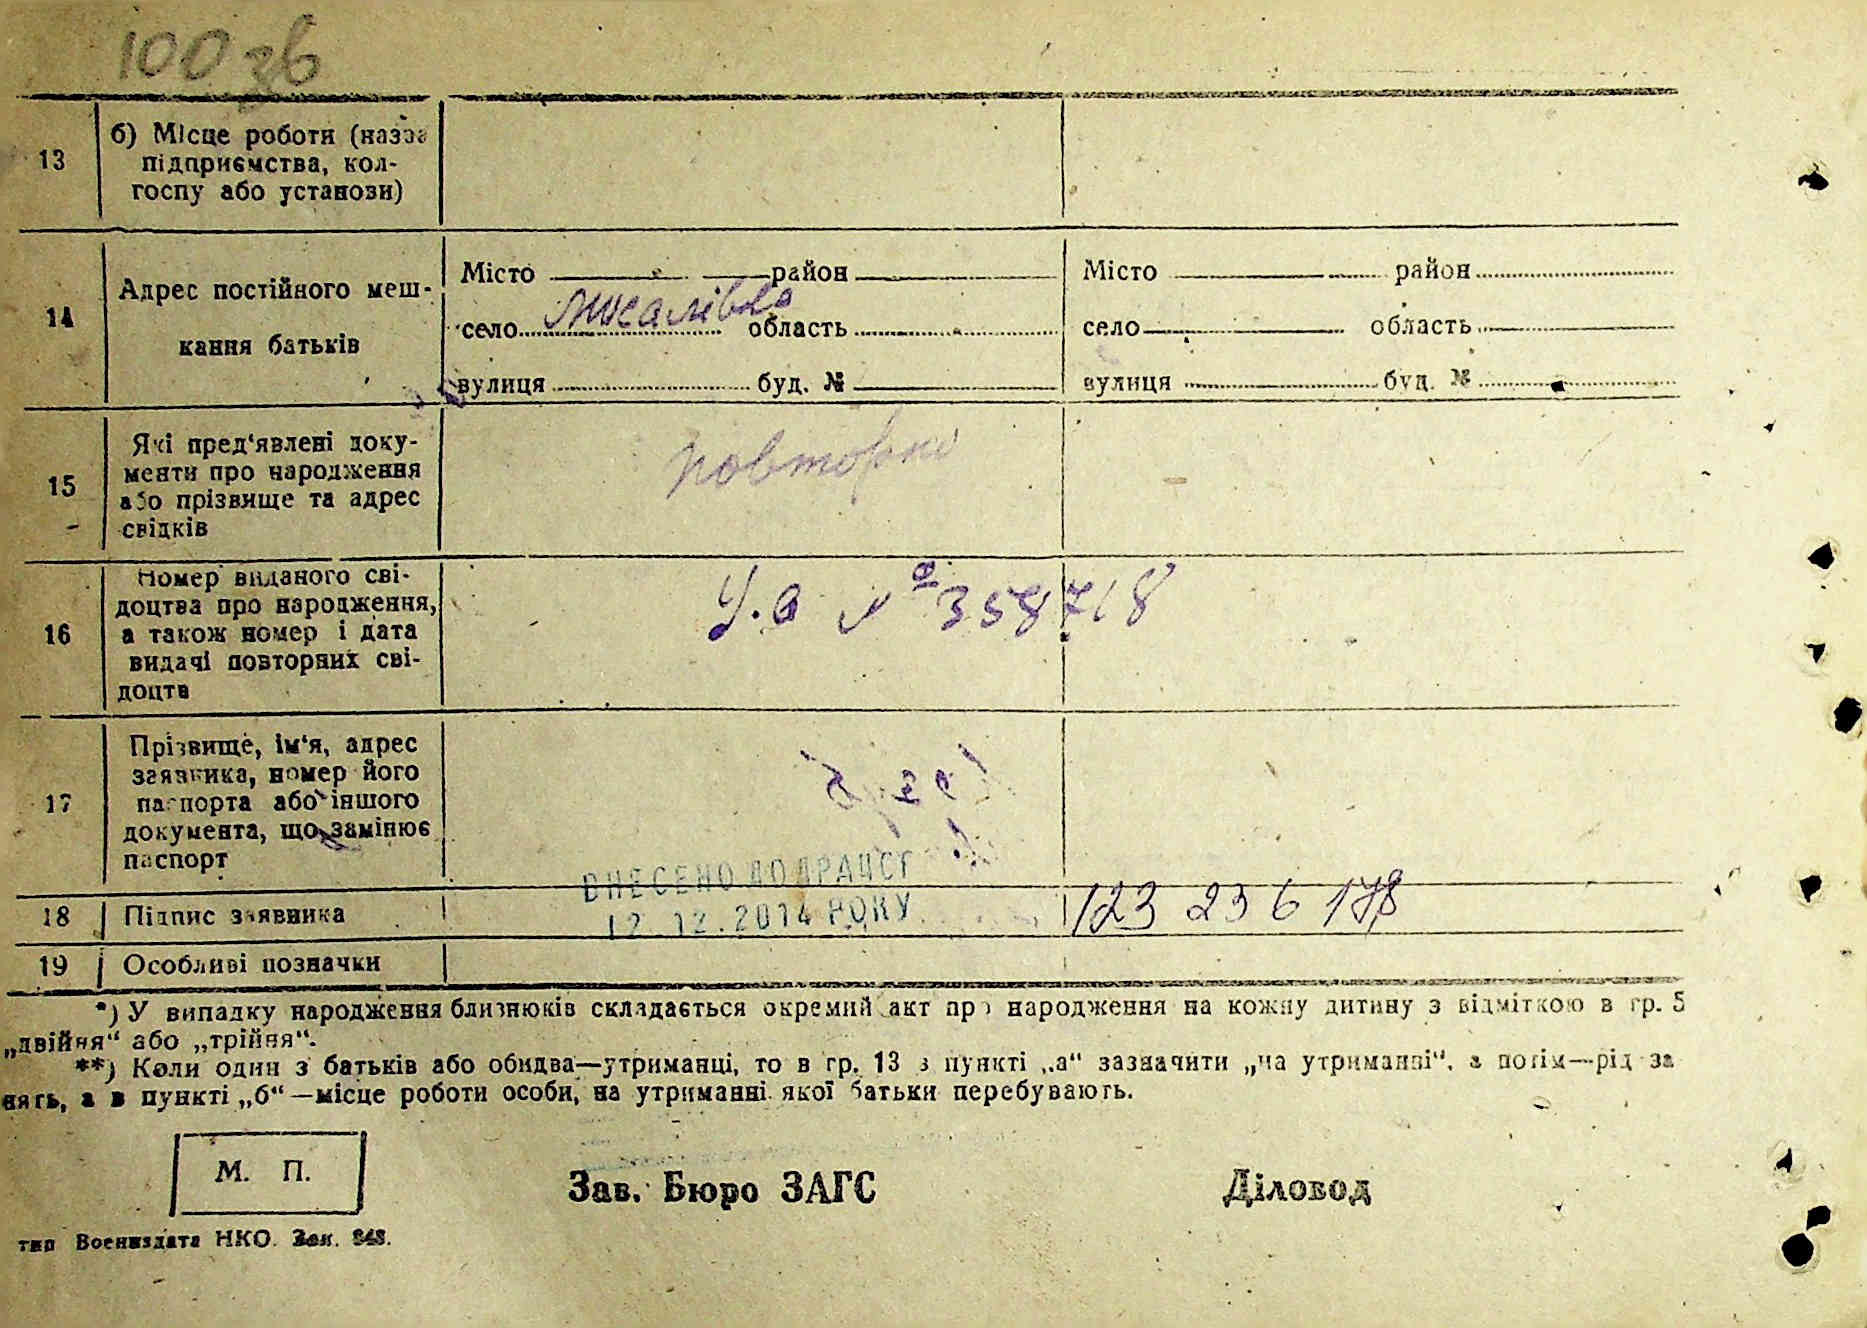 100 зв
13
б) Місце роботи (назва
підприємства, кол-
госпу або установи)
14
Адрес постійного меш-
кання батьків
Місто район
село область
вулиця буд. №
Місто район
село область
вулиця буд. №
15
Які пред‘явлені доку-
менти про народження
або прізвище та адрес
свідків
повторно
16
Номер виданого сві-
доцтва про народження,
а також номер і дата
видачі повторних сві-
доцтв
№ 358718
17
Прізвище, ім‘я, адрес
заявника, номер його
паспорта або іншого
документа, що замінює
паспорт
ВНЕСЕНО ДО ДРАЦСГ
12.12.2014 РОКУ
18
Підпис заявника
123 236 178
19
Особливі позначки
*) У випадку народження близнюків складається окремий акт про народження на кожну дитину з відміткою в гр. 5
„двійня“ або „трійня“.
**) Коли один з батьків або обидва—утриманці, то в гр. 13 в пункті „а“ зазначити „на утриманні“, а потім—рід за
нять, а в пункті „б“—місце роботи особи, на утриманні якої батьки перебувають.
М. П.
Зав. Бюро ЗАГС
Діловод
тип Воениздата НКО. Зак. 848.